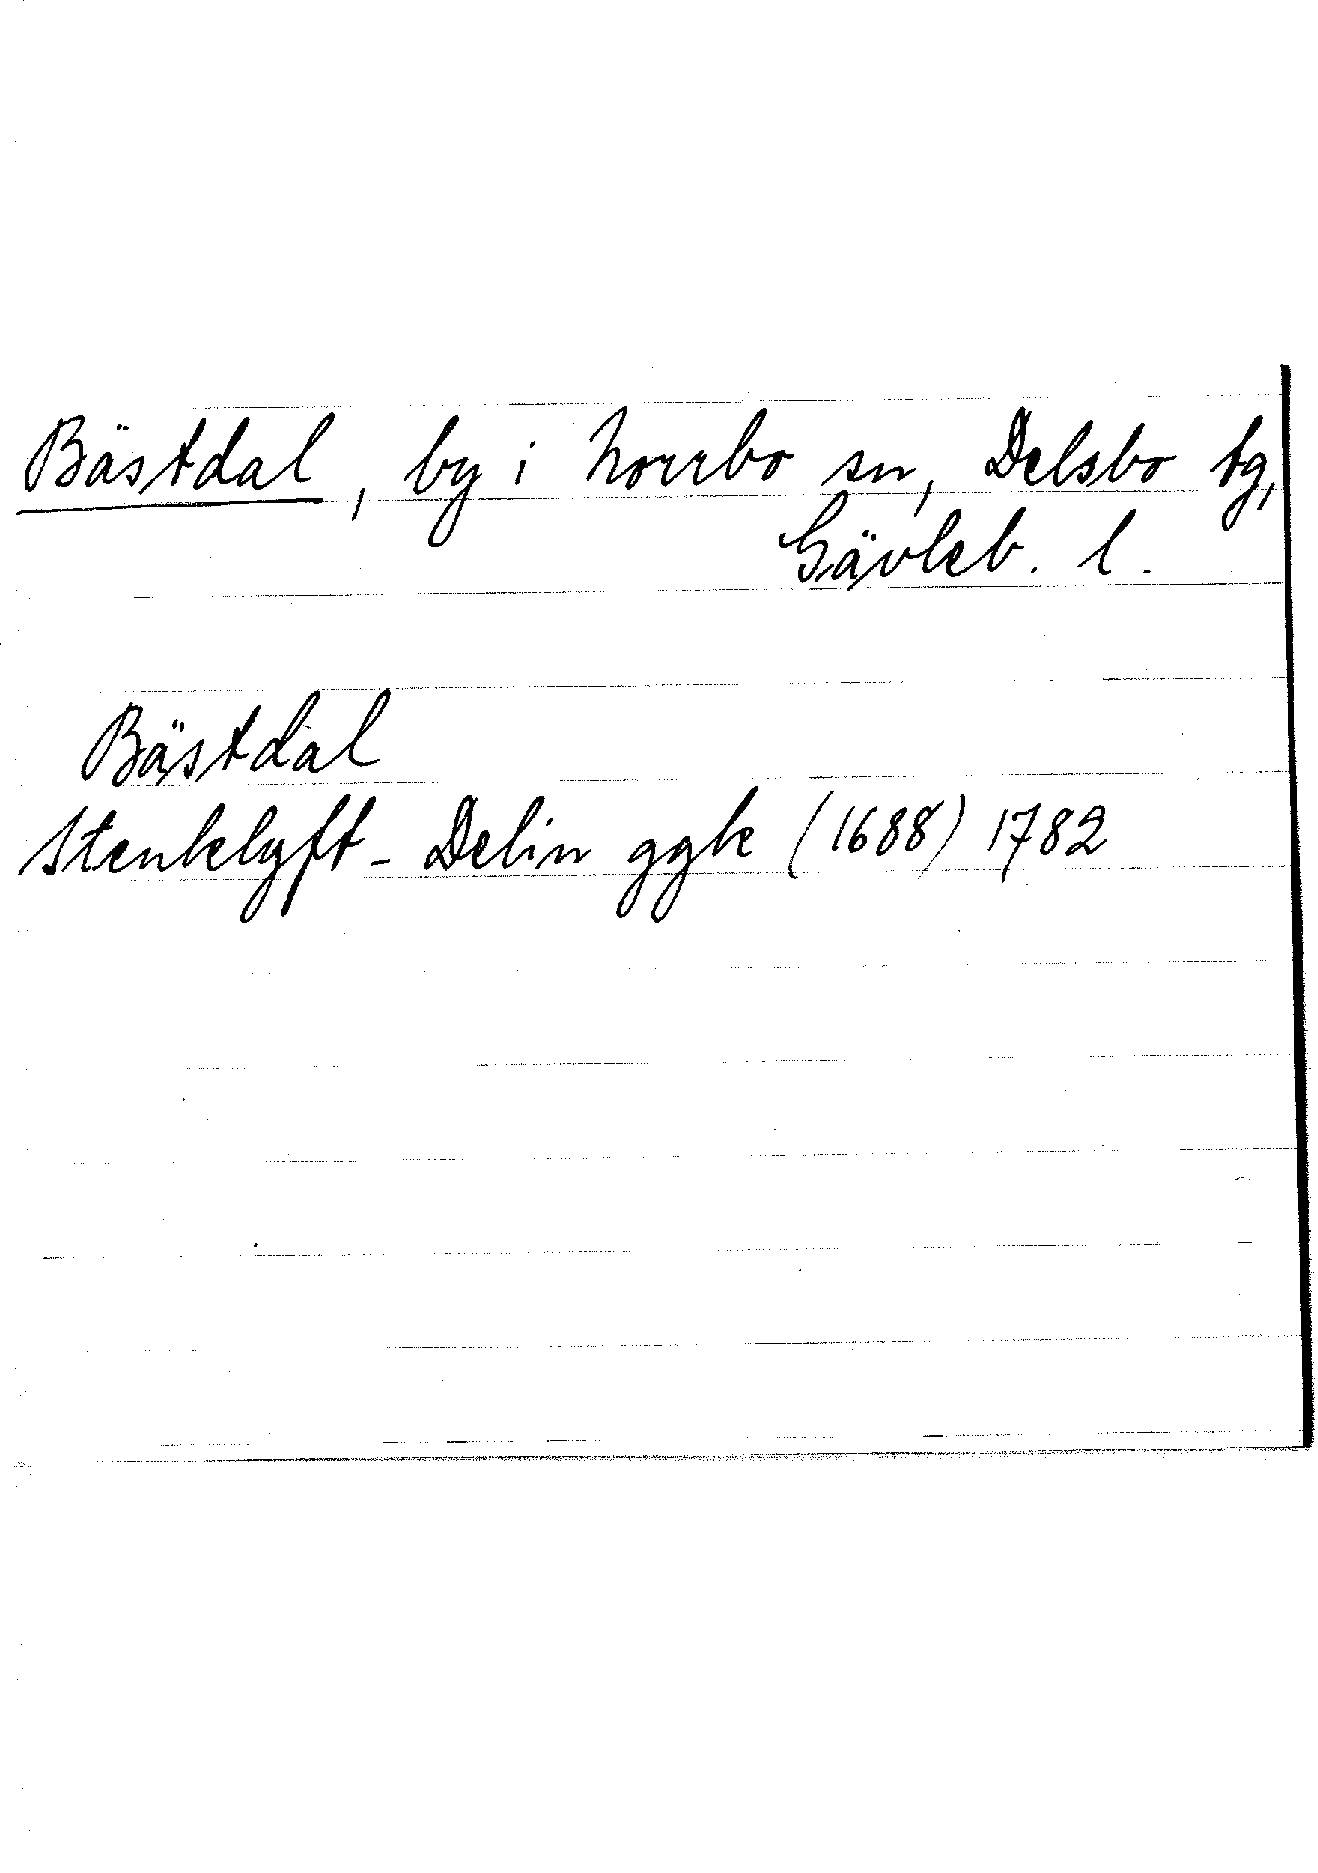 Bästdal, by i Norrbo sn, Delsbo tg,
Gävleb. l.
Bästdal
Stenklyft - Delin ggk (1688) 1782